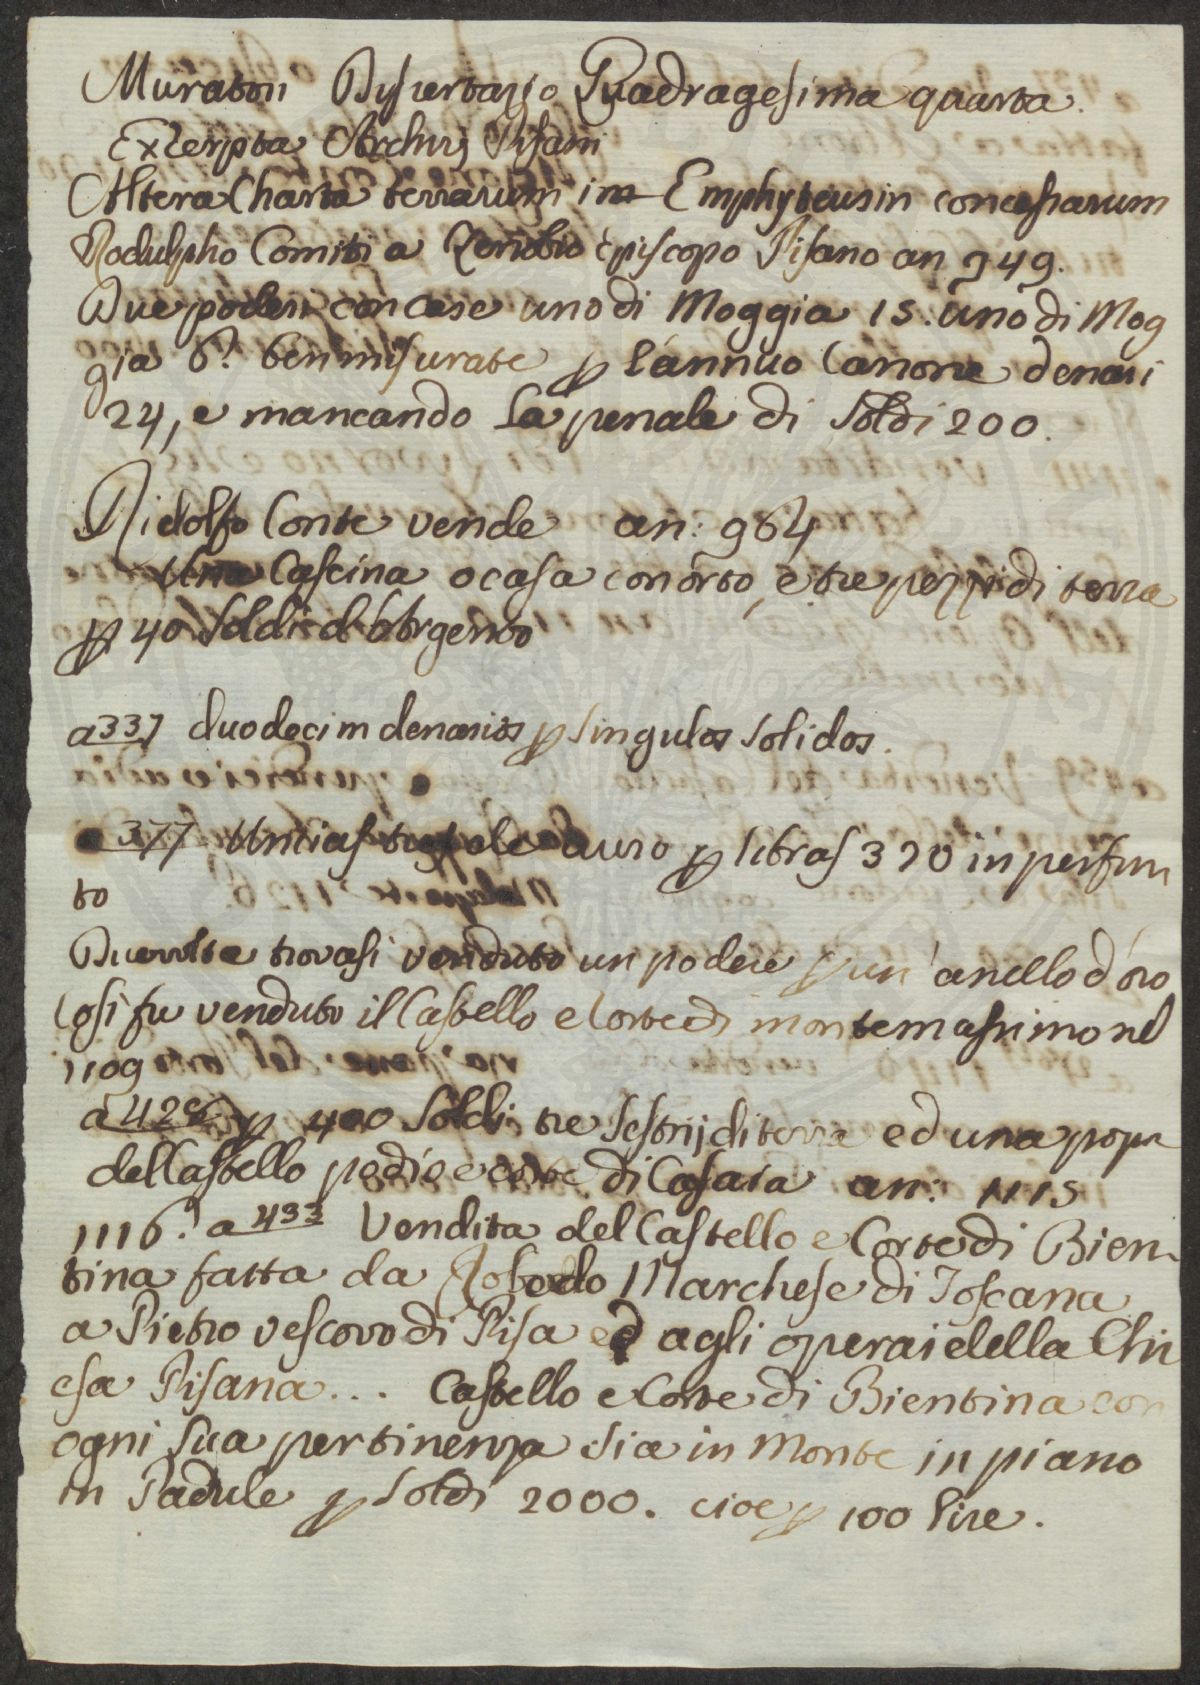 Muratori Dissertazio Quadragesima quarta.
Excerpta Archivij Pisani
Altera Charta terrarum in Emphyteusin concessarum
Rodulpho Comiti a Zenobio Episcopo Pisano an 949.
Due poderi concese uno di Moggia 15. uno di Mog
gia 6. ben misurate p l'annuo Canone denari
24, e mancando la penale di Soldi 200.
Ridolfo Conte vende an: 964
Una Cascina o casa con orto, e tre pezzi di terra
p 40 Soldi d'Argento
a 337 duodecim denarios p singulos solidos.
a 377 Untias de auro p libras 320 in perfini
to
Due volte trovasi venduto un podere p un anello d'oro
Cosi fu venduto il Castello e Corte di montemassimo nel
1109
a 428 p 400 Soldi tre Sestrij di terra ed una
del Castello podio e corte di Casaia an: 1115
1116. a 433 Vendita del Castello e Corte di Bien
tina fatta da Marchese di Toscana
a Pietro vescovo di Pisa ed agli operai della Chi
esa Pisana... Castello e Corte di Bientina con
ogni sua pertinenza sia in Monte in piano
in Padule p Soldi 2000. cioe p 100 lire.